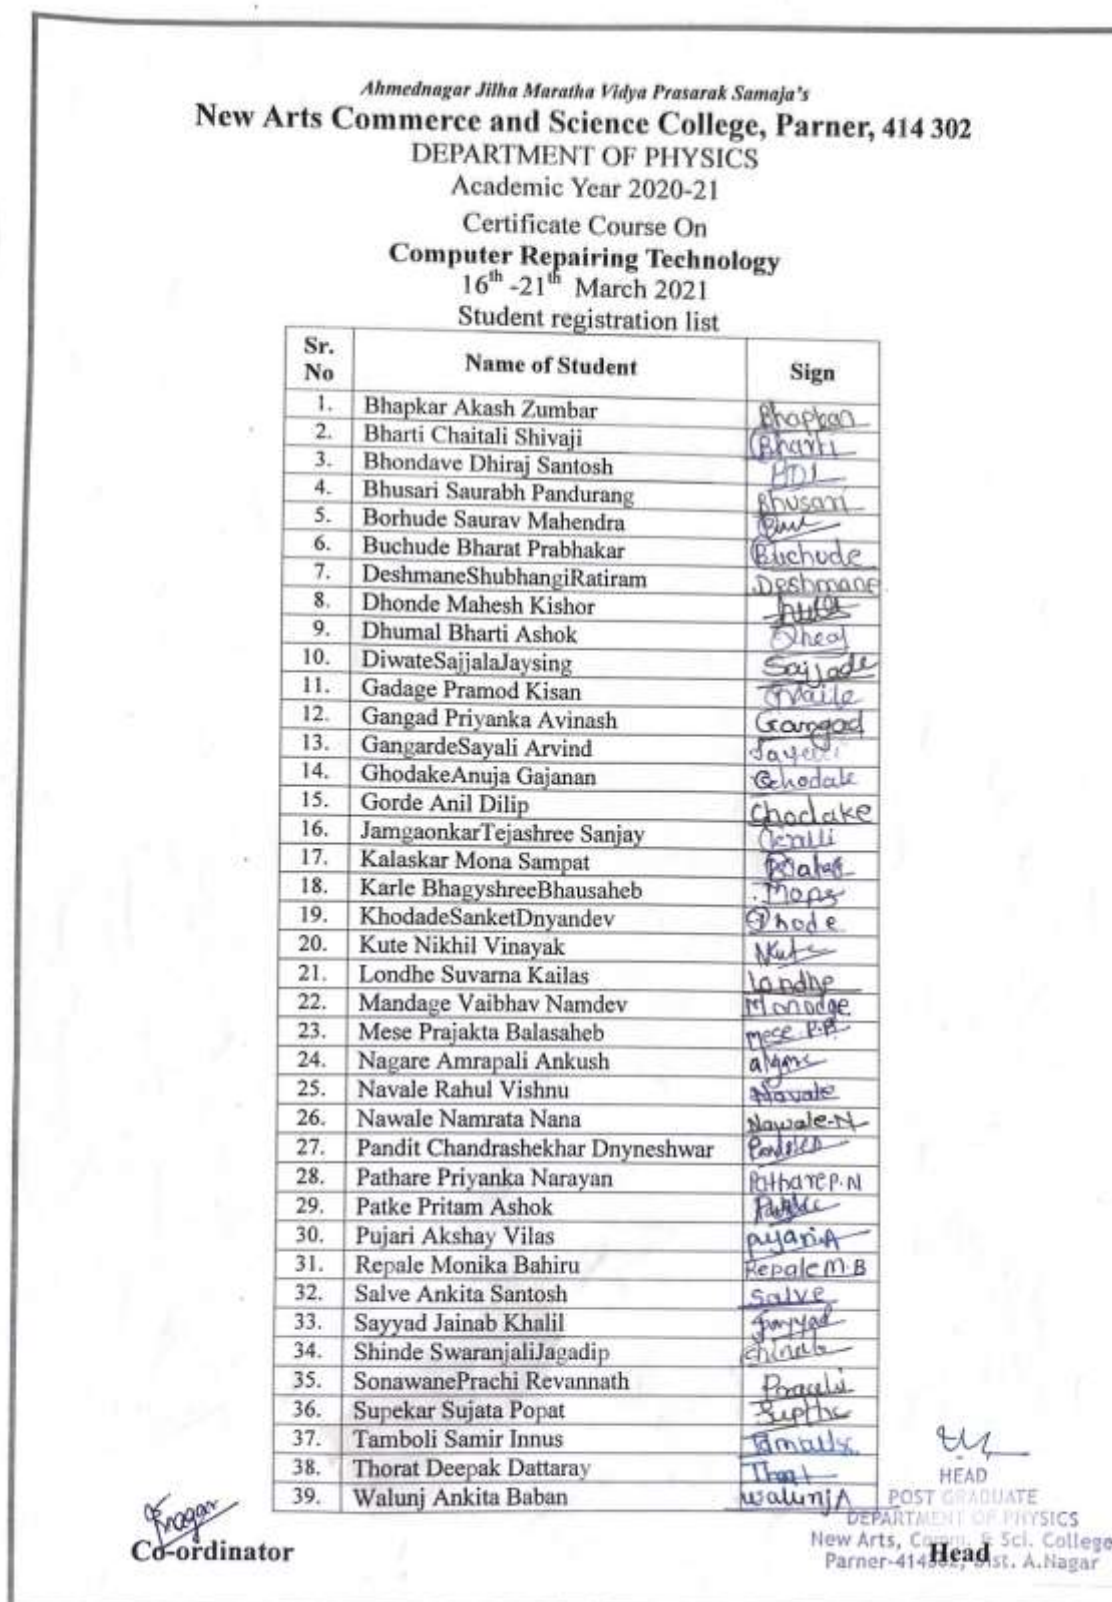 Ahmednagar Jilha Maratha Vidya Prasarak Samaja's
New Arts Commerce and Science College, Parner, 414 302
DEPARTMENT OF PHYSICS
Academic Year 2020-21
Certificate Course On
Computer Repairing Technology
16th -21th March 2021
Student registration list
Sr. No Name of Student Sign
1. Bhapkar Akash Zumbar Bhapkar
2. Bharti Chaitali Shivaji Bharti
3. Bhondave Dhiraj Santosh
4. Bhusari Saurabh Pandurang Bhusari
5. Borhude Saurav Mahendra
6. Buchude Bharat Prabhakar Buchude
7. DeshmaneShubhangiRatiram Deshmane
8. Dhonde Mahesh Kishor
9. Dhumal Bharti Ashok
10. DiwateSajjalaJaysing
11. Gadage Pramod Kisan
12. Gangad Priyanka Avinash Gangad
13. GangardeSayali Arvind
14. GhodakeAnuja Gajanan
15. Gorde Anil Dilip Ghodake
16. JamgaonkarTejashree Sanjay
17. Kalaskar Mona Sampat
18. Karle BhagyshreeBhausaheb
19. KhodadeSanketDnyandev
20. Kute Nikhil Vinayak Kute
21. Londhe Suvarna Kailas Londhe
22. Mandage Vaibhav Namdev
23. Mese Prajakta Balasaheb mese P.B
24. Nagare Amrapali Ankush
25. Navale Rahul Vishnu Navale
26. Nawale Namrata Nana Nawale.N
27. Pandit Chandrashekhar Dnyneshwar
28. Pathare Priyanka Narayan Pathare P.N
29. Patke Pritam Ashok
30. Pujari Akshay Vilas pujari.A
31. Repale Monika Bahiru Repale M.B
32. Salve Ankita Santosh Salve
33. Sayyad Jainab Khalil Sayyad
34. Shinde SwaranjaliJagadip
35. SonawanePrachi Revannath Prachi
36. Supekar Sujata Popat
37. Tamboli Samir Innus
38. Thorat Deepak Dattaray
39. Walunj Ankita Baban walunj A
HEAD
POST GRADUATE
DEPARTMENT OF PHYSICS
New Arts, Comm. & Sci. College
Parner-414302, Dist. A.Nagar
Co-ordinator Head